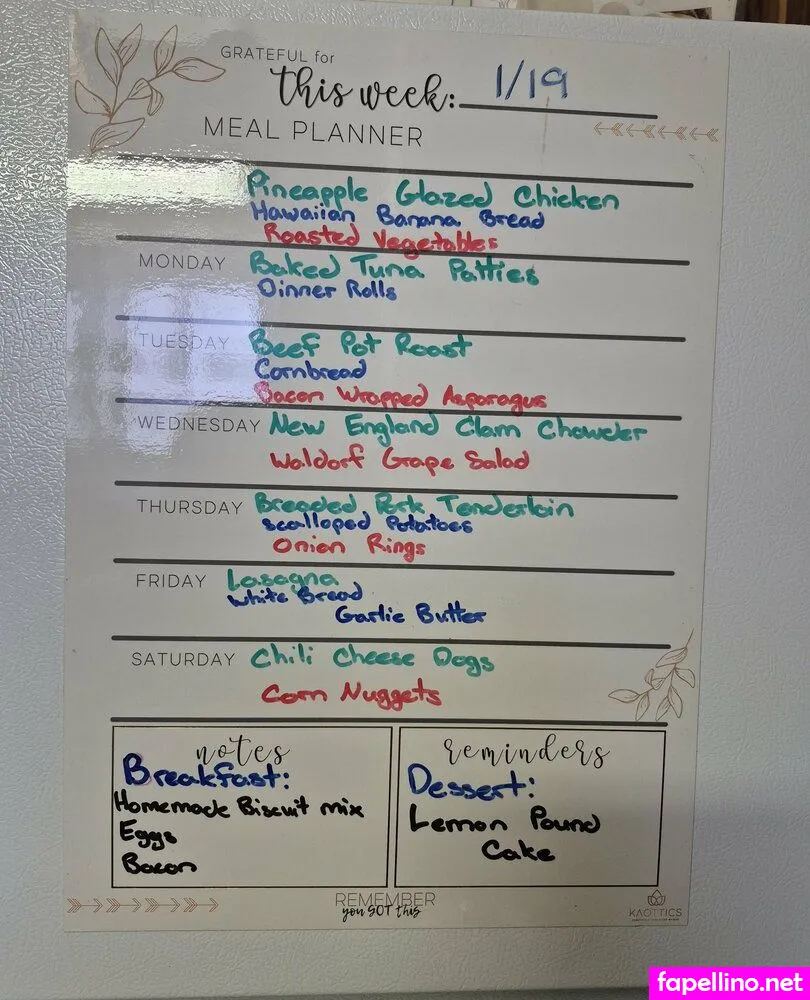 GRATEFUL for
this week: 1/19
MEAL PLANNER
Pineapple Glazed Chicken
Hawaiian Banana Bread
Roasted Vegetables
MONDAY Baked Tuna Patties
Dinner Rolls
TUESDAY Beef Pot Roast
Cornbread
Bacon Wrapped Asparagus
WEDNESDAY New England Clam Chowder
Waldorf Grape Salad
THURSDAY Breaded Pork Tenderloin
scalloped Potatoes
Onion Rings
FRIDAY Lasagna
White Bread
Garlic Butter
SATURDAY Chili Cheese Dogs
Corn Nuggets
notes
Breakfast:
Homemade Biscuit mix
Eggs
Bacon
reminders
Dessert:
Lemon Pound
Cake
REMEMBER
you GOT this
KAOTTICS
fapellino.net